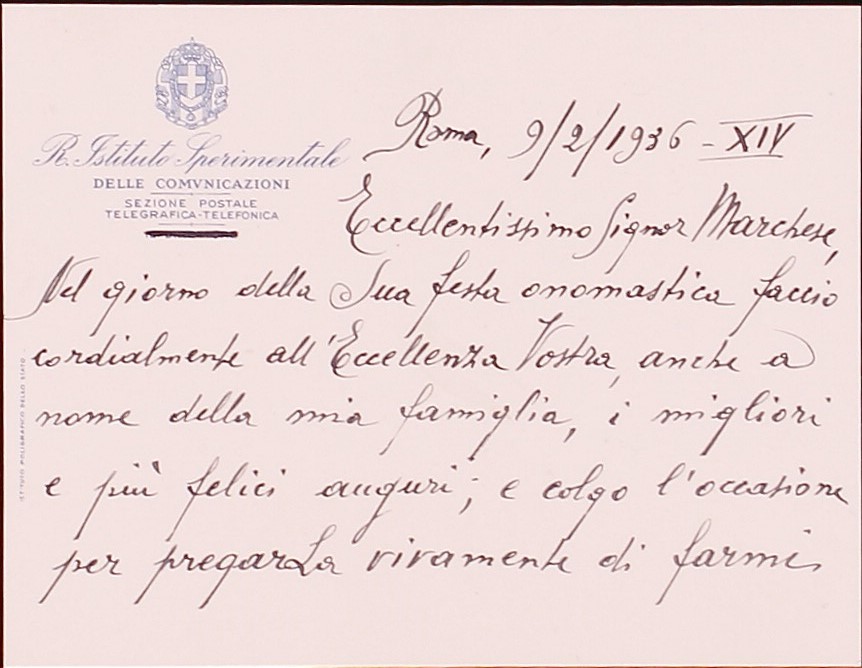 R. Istituto Sperimentale
DELLE COMVNICAZIONI
SEZIONE POSTALE
TELEGRAFICA-TELEFONICA
Roma, 9/2/1936 - XIV
Eccellentissimo Signor Marchese,
Nel giorno della Sua festa onomastica faccio
cordialmente all'Eccellenza Vostra, anche a
nome della mia famiglia, i migliori
e più felici auguri; e colgo l'occasione
per pregarLa vivamente di farmi
ISTITUTO POLIGRAFICO DELLO STATO